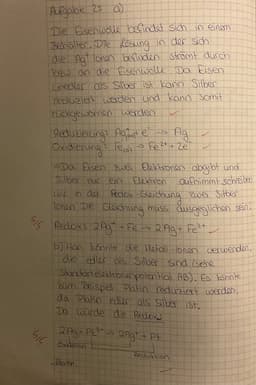 Aufgabe 23 a)
Die Eisenwolle befindet sich in einem
Behälter. Die Lösung in der sich
die Ag⁺ Ionen befinden strömt durch
bzw. an die Eisenwolle. Da Eisen
unedler als Silber ist kann Silber
reduziert werden und kann somit
rückgewonnen werden
Reduzierung: Ag⁺ + e⁻ → Ag
Oxidierung: Fe → Fe²⁺ + 2e⁻
Da Eisen zwei Elektronen abgibt und
Silber nur ein Elektron aufnimmt schreibt
in der Redox-Gleichung zwei Silber
Ionen. Die Gleichung muss ausgeglichen sein.
5/5 Redox: 2Ag⁺ + Fe → 2Ag + Fe²⁺
b) Man könnte die Metall Ionen verwenden,
die edler als Silber sind (siehe
Standardelektrodenpotential AB). Es könnte
zum Beispiel Platin reduziert werden,
da Platin edler als Silber ist.
Da würde die Redox
2Ag + Pt²⁺ → 2Ag⁺ + Pt